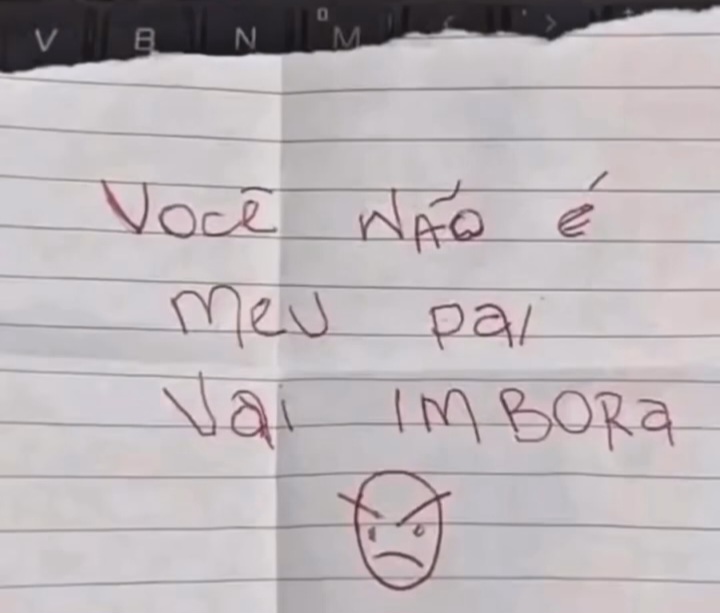 V B N M < >
Você NÃO é
Meu pai
Vai IMBORA